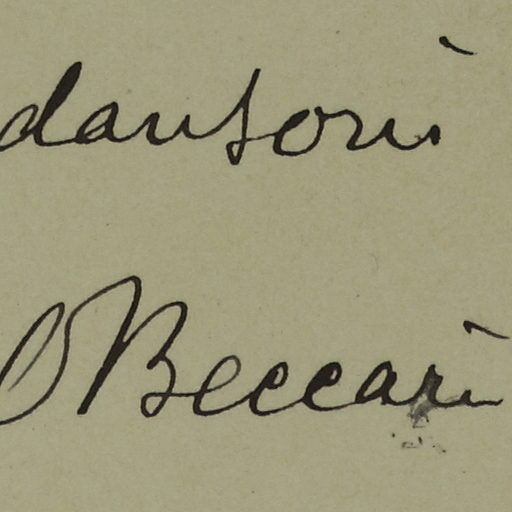 dansoni
O Beccari